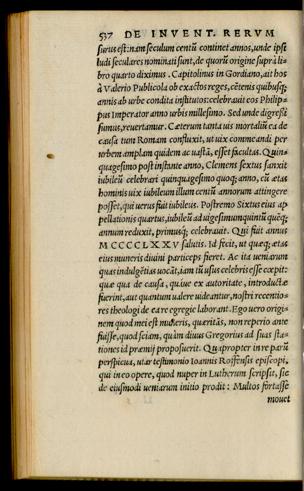 537 DE INVENT. RERVM
surus est: nam seculum centū continet annos, unde ipsi
ludi seculares nominati sunt, de quorū origine suprà li-
bro quarto diximus. Capitolinus in Gordiano, ait hos
à Valerio Publicola ob exactos reges, cētenis quibusq;
annis ab urbe condita institutos: celebrauit eos Philip-
pus Imperator anno urbis millesimo. Sed unde digressi
sumus, reuertamur. Cæterum tanta uis mortaliū ea de
causa tum Romam confluxit, ut uix commeandi per
urbem amplam quidem ac uastā, esset facultas. Quin-
quagesimo post instante anno, Clemens sextus sanxit
iubileū celebrari quinquagesimo quoq; anno, cū ætas
hominis uix iubileum illum centū annorum attingere
posset, qui uerus fuit iubileus. Postremo Sixtus eius ap
pellationis quartus, iubileū ad uigesimumquintū quēq;
annum reduxit, primusq; celebrauit. Qui fuit annus
MCCCCLXXV salutis. Id fecit, ut quæq; ætas
eius muneris diuini particeps fieret. Ac ita ueniarum
quas indulgētias uocāt, iam tū usus celebris esse cœpit:
quæ qua de causa, quíue ex autoritate, introductæ
fuerint, aut quantum ualere uideantur, nostri recentio-
res theologi de ea re egregie laborant. Ego uero origi-
nem quod mei est muneris, quæritās, non reperio ante
fuisse, quod sciam, quàm diuus Gregorius ad suas sta-
tiones id præmij proposuerit. Quapropter in re parū
perspicua, utar testimonio Ioannis Roffensis episcopi,
qui in eo opere, quod nuper in Lutherum scripsit, sic
de eiusmodi ueniarum initio prodit: Multos fortasse
mouet